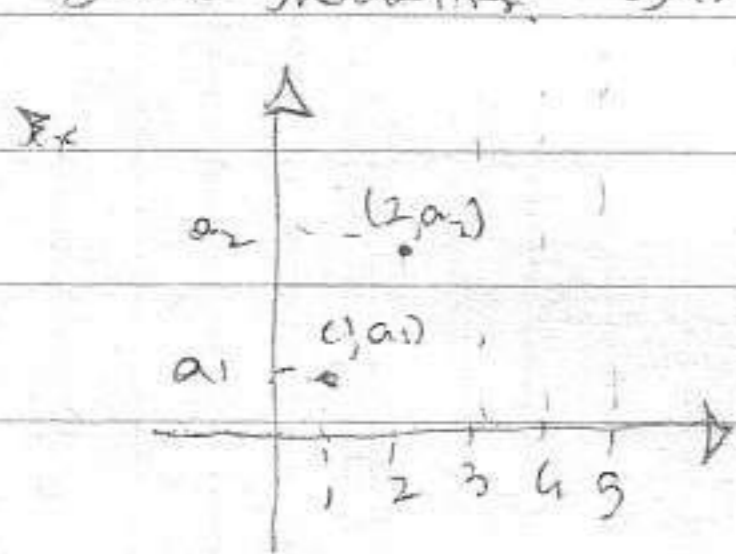 a2 (2,a2)
a1 (1,a1)
1 2 3 4 5